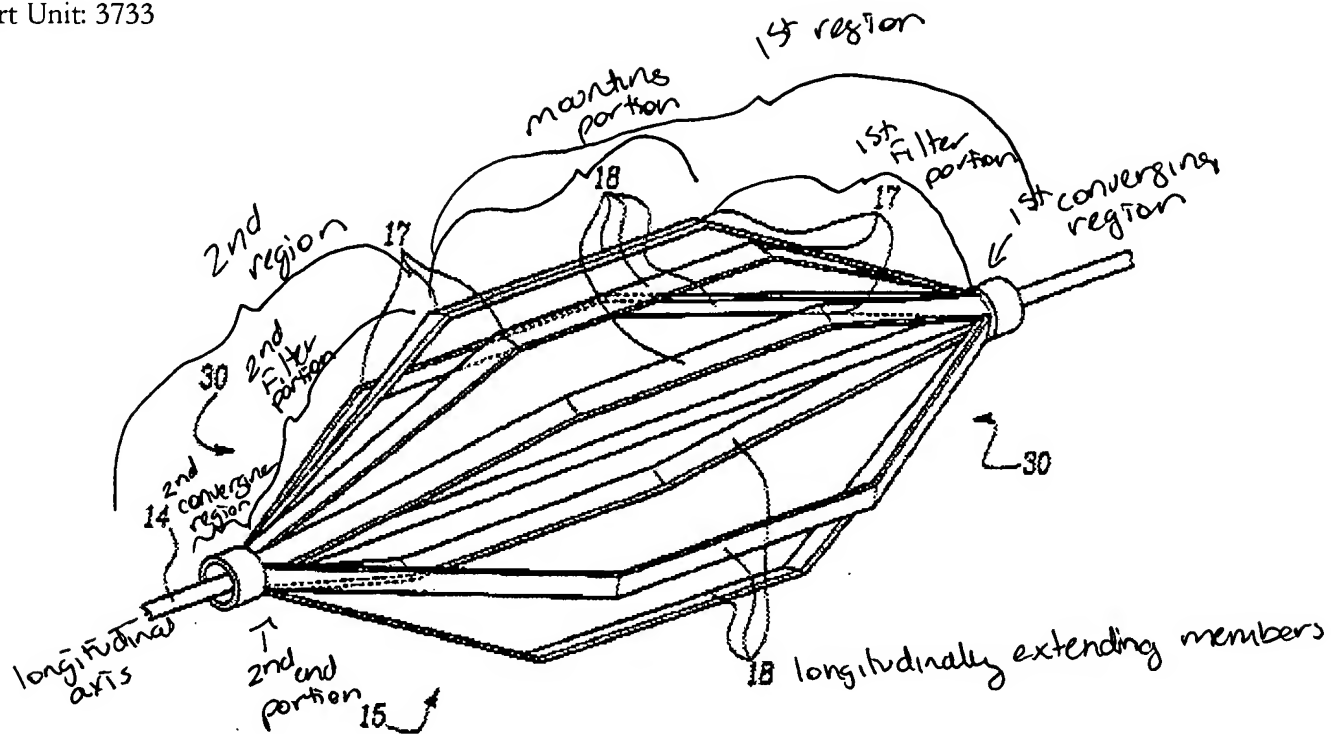 rt Unit: 3733
1st region
mounting
portion
1st
Filter
portion
1st converging
region
18
17
2nd
region
17
30
2nd
Filter
portion
2nd
converging
region
14
30
longitudinal
axis
2nd end
portion
15
18 longitudinally extending members